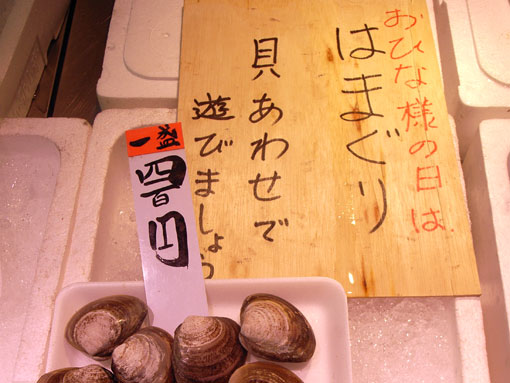 おひな様の日は
はまぐり
貝あわせで
遊びましょう
一盛
四百円